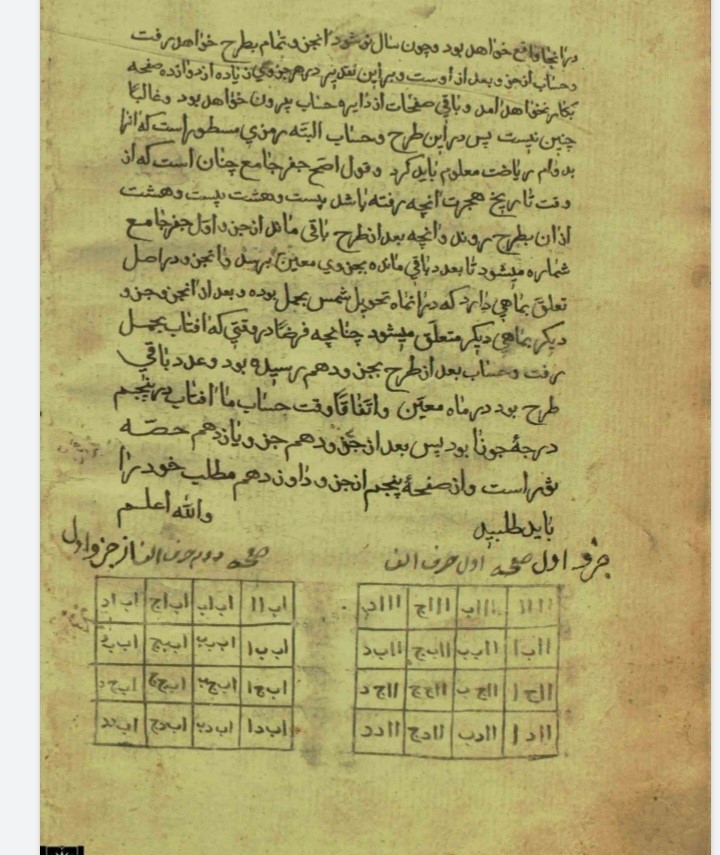 درانجا واقع خواهد بود و چون سال نو شود انجزو تمام بطرح خواهد رفت
و حساب انجزو بعد از اوست و برین تقدیر در هر جزوی زیاده از دوازده صفحه
بکار نخواهد آمد و باقی صفحات از دایره حساب بیرون خواهد بود و غالبا
چنین نیست پس در این طرح و حساب البته رمزی مسطور است که انرا
بدوام ریاضت معلوم باید کرد و قول اصح جفر جامع چنان است که از
وقت تاریخ هجرت انچه رفته باشد بیست و هشت بیست و هشت
ازان بطرح روند و انچه بعد از طرح باقی ماند ازجزو اول جفر جامع
شماره میشود تا بعدد باقی مانده بجزوی معین برسد و انجزو در اصل
تعلق بماهی دارد که در انماه تحویل شمس بحمل بوده و بعد از انجزو جزو
دیگر بماهی دیگر متعلق میشود چنانچه فرضا در وقتی که افتاب بحمل
رفت و حساب بعد از طرح بجزو دهم رسیده بود و عدد باقی
طرح بود در ماه معین و اتفاقا وقت حساب ما افتاب در پنجم
درجهٔ جوزا بود پس بعد از جزو دهم جزو یازدهم حصه
ثور است و از صفحهٔ پنجم انجزو دوازدهم مطلب خود را
باید طلبید والله اعلم
جزو اول صفحه اول حرف الف
اااا اااب اااج اااد
ااب ا ااب ب ااب ج ااب د
ااج ا ااج ب ااج ج ااج د
ااد ا ااد ب ااد ج ااد د
صفحه دوم حرف الف از جزو اول
اب اا اب اب اب اج اب اد
اب ب ا اب ب ب اب ب ج اب ب د
اب ج ا اب ج ب اب ج ج اب ج د
اب د ا اب د ب اب د ج اب د د